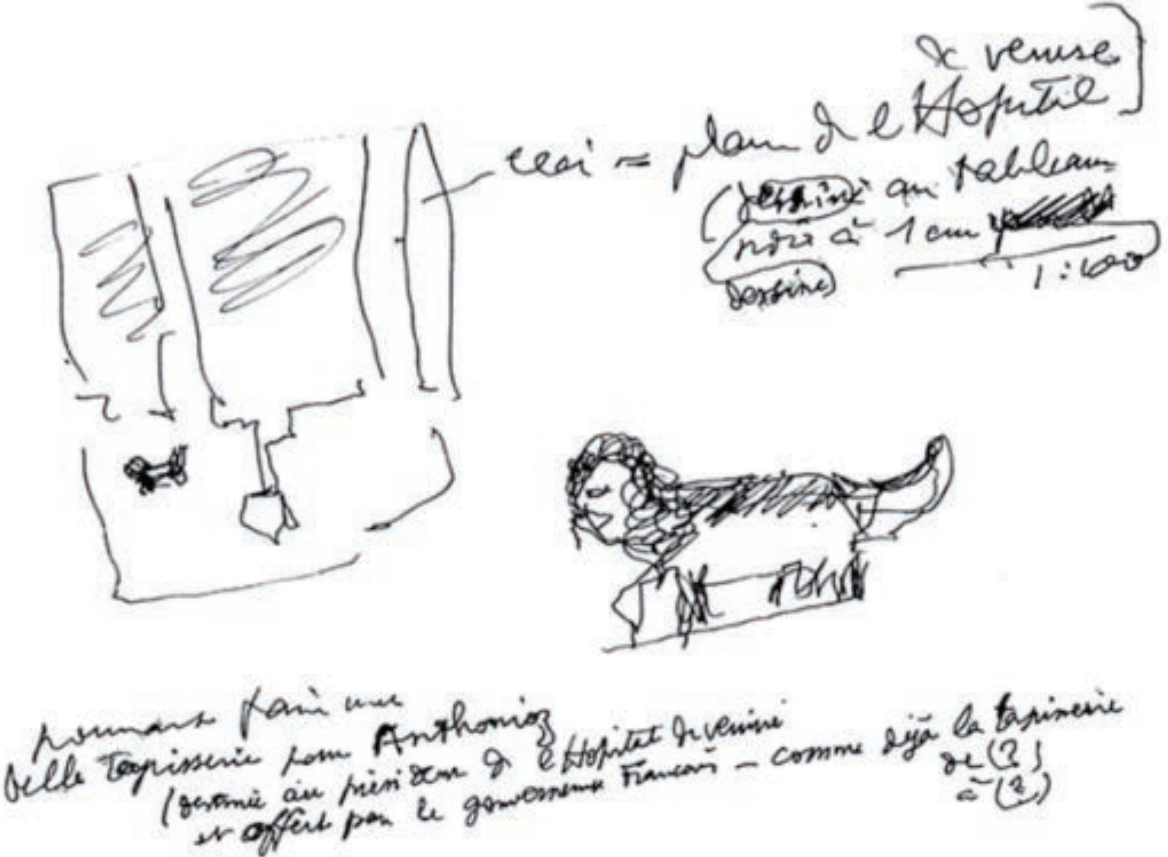 de venise
ceci = plan de l'Hopital
(dessiné au tableau
noir à 1 cm
dessiné)
1:100
pourrait faire une
belle tapisserie pour Anthonioz
(destinée au président de l'Hopital de venise
et offert par le gouvernement Francais – comme déjà la tapisserie
de (?)
à (?)